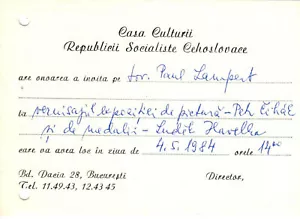 Casa Culturii
Republicii Socialiste Cehoslovace
are onoarea a invita pe tov. Paul Lampert
la vernisajul expoziţiei de pictură - Petr Čihák
şi de medalii - Luděk Havelka
care va avea loc în ziua de 4.5.1984 orele 14⁰⁰
Bd. Dacia 28, Bucureşti
Director,
Tel. 11.49.43, 12.43.45